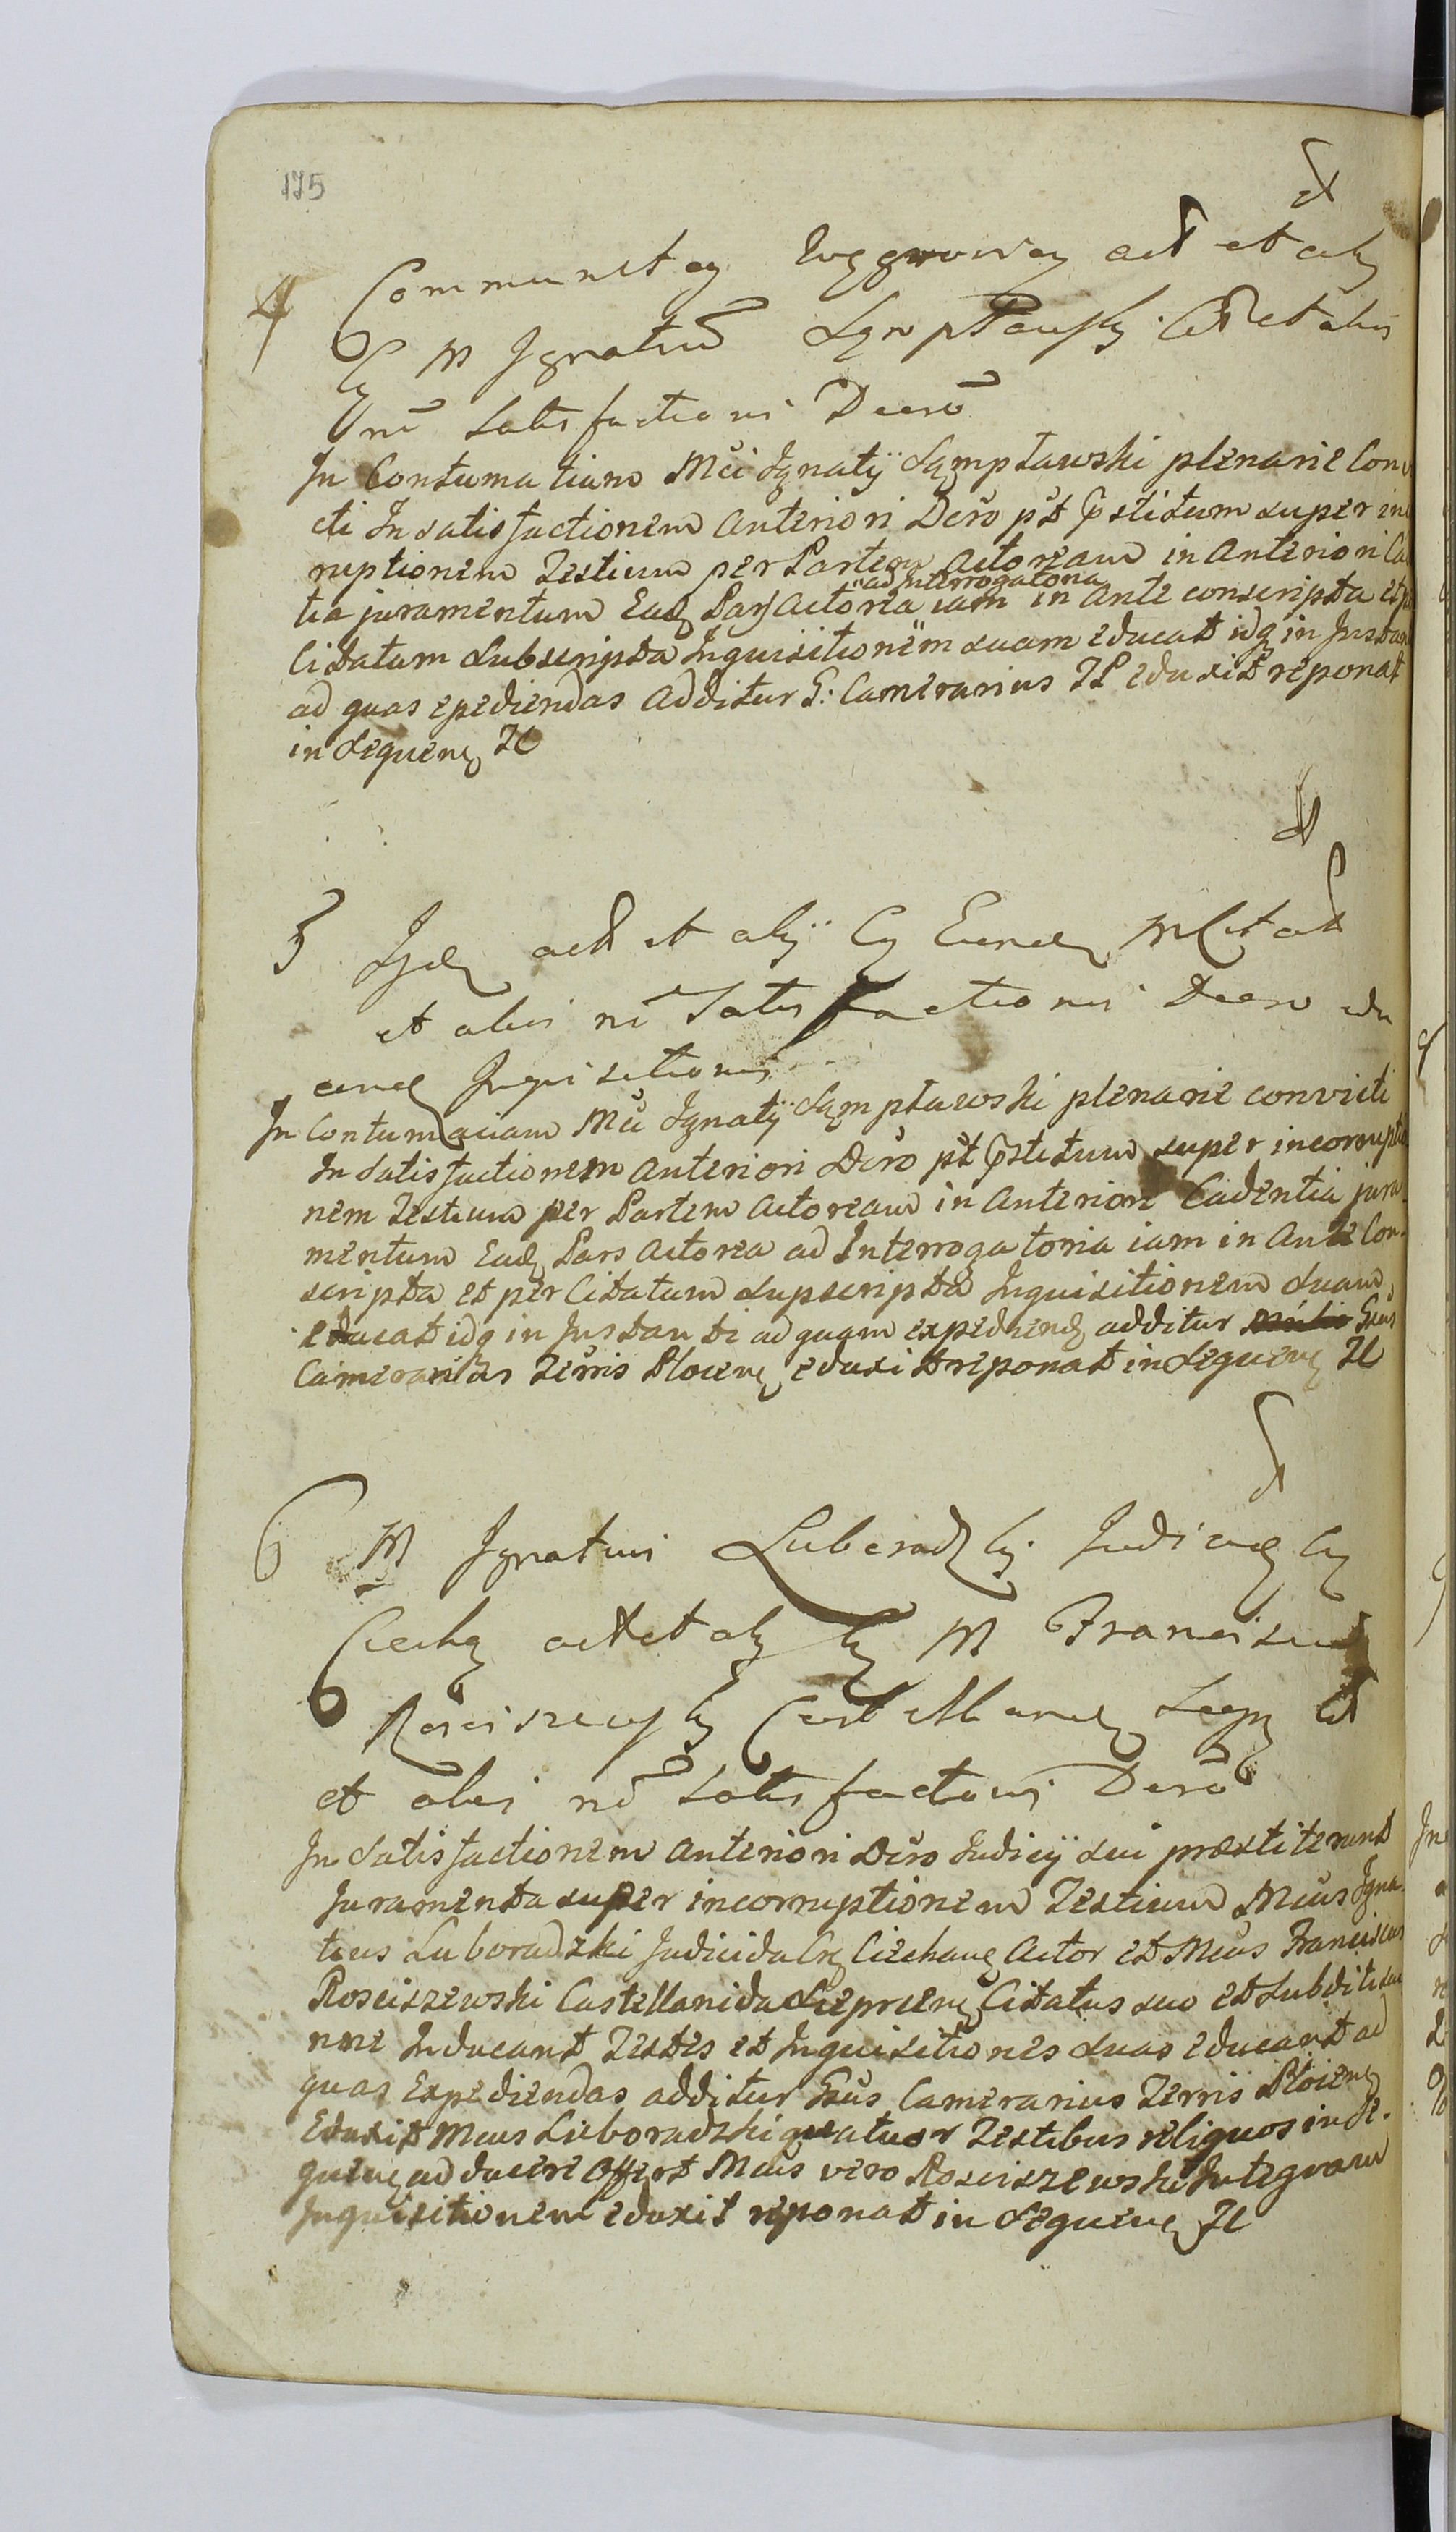 175
4 Communitas Węgrowien act et alii
Cũ M Ignatiũ Sęmpławski Citt et alios
rnẽ satisfactionis Decrõ
In Contumatiam Mci Ignatij Sęmpławski plenarie Con
cti In satisfactionem anteriori Decro pt pstitum super in
ruptionem Testium per Partem actoream in anteriori Ca
ad Interrogatoria
tia juramentum Eadę Pars Actorea iam in ante conscripta et p
Citatum Subscripta Inquisitionem suam educat idq in Instan
ad quas epediendas additur G: Camerarius TP eduxit reponat
in Sequenę Tt
5 Idę act et alij Cũ Eundę M Citat
et alios rnẽ Satisfactionis Decro edu
cendę Inquisitionis
In Contumaciam Mci Ignatij Sęmpławski plenarie convicti
In satisfactionem anteriori Decro pt pstitum super incorrupti
nem Testium per Partem actoream in anteriori Cadentia jura
mentum Eadę Pars actorea ad Interrogatoria iam in Ante Con
scripta et per Citatum supscripta Inquisitionem suam
educat idq in Instanti ad quam expediendę additur Gnus
Camerarius Terris Plocenę eduxit reponat in Sequenę Tt
6 M Ignatius Luboradzki Judicidę Cũ
Ciecha act et alij Cũ M Franciscum
Rosciszewski Castellanidę Siepr Citt
et alios rnẽ satisfactionis Decrõ
In satisfactionem anteriori Decro Judicij sui præstiterunt
Juramenta super incorruptionem Testium Mcus Igna
tius Luboradzki Judicida Crę Ciechanę Actor et Mcus Franciscus
Rosciszewski Castellanida Sieprcenę Citatus suo et Subditorum
nne Inducant Testes et Inquisitiones suas educant ad
quas Expediendas additur Gnus Camerarius Terris Plocenę
Eduxit Mcus Luboradzki quatuor Testibus reliquos in Se.
quenę adducere offert Mcus vero Rosciszewski Integram
Inquisitionem eduxit reponat in Sequenę Tt